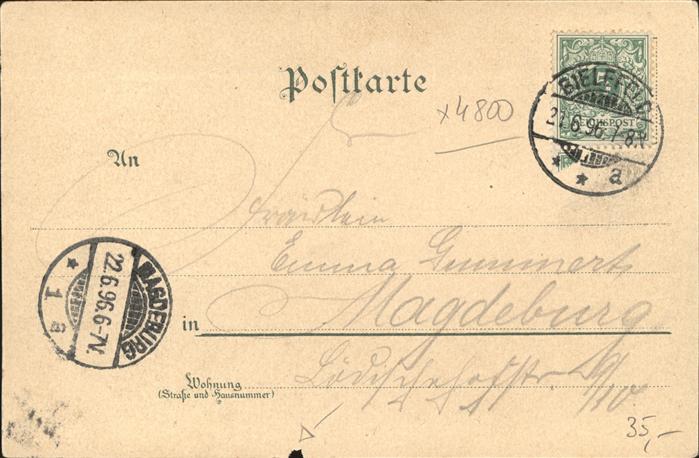 Postkarte
x4800
BIELEFELD
21.6.96. 7-8.V.
REICHSPOST
* * a
An
Fräulein
Emma Gummert
in Magdeburg
MAGDEBURG
22.6.96.6-7V.
* 1 a
Wohnung
(Straße und Hausnummer)
35,-